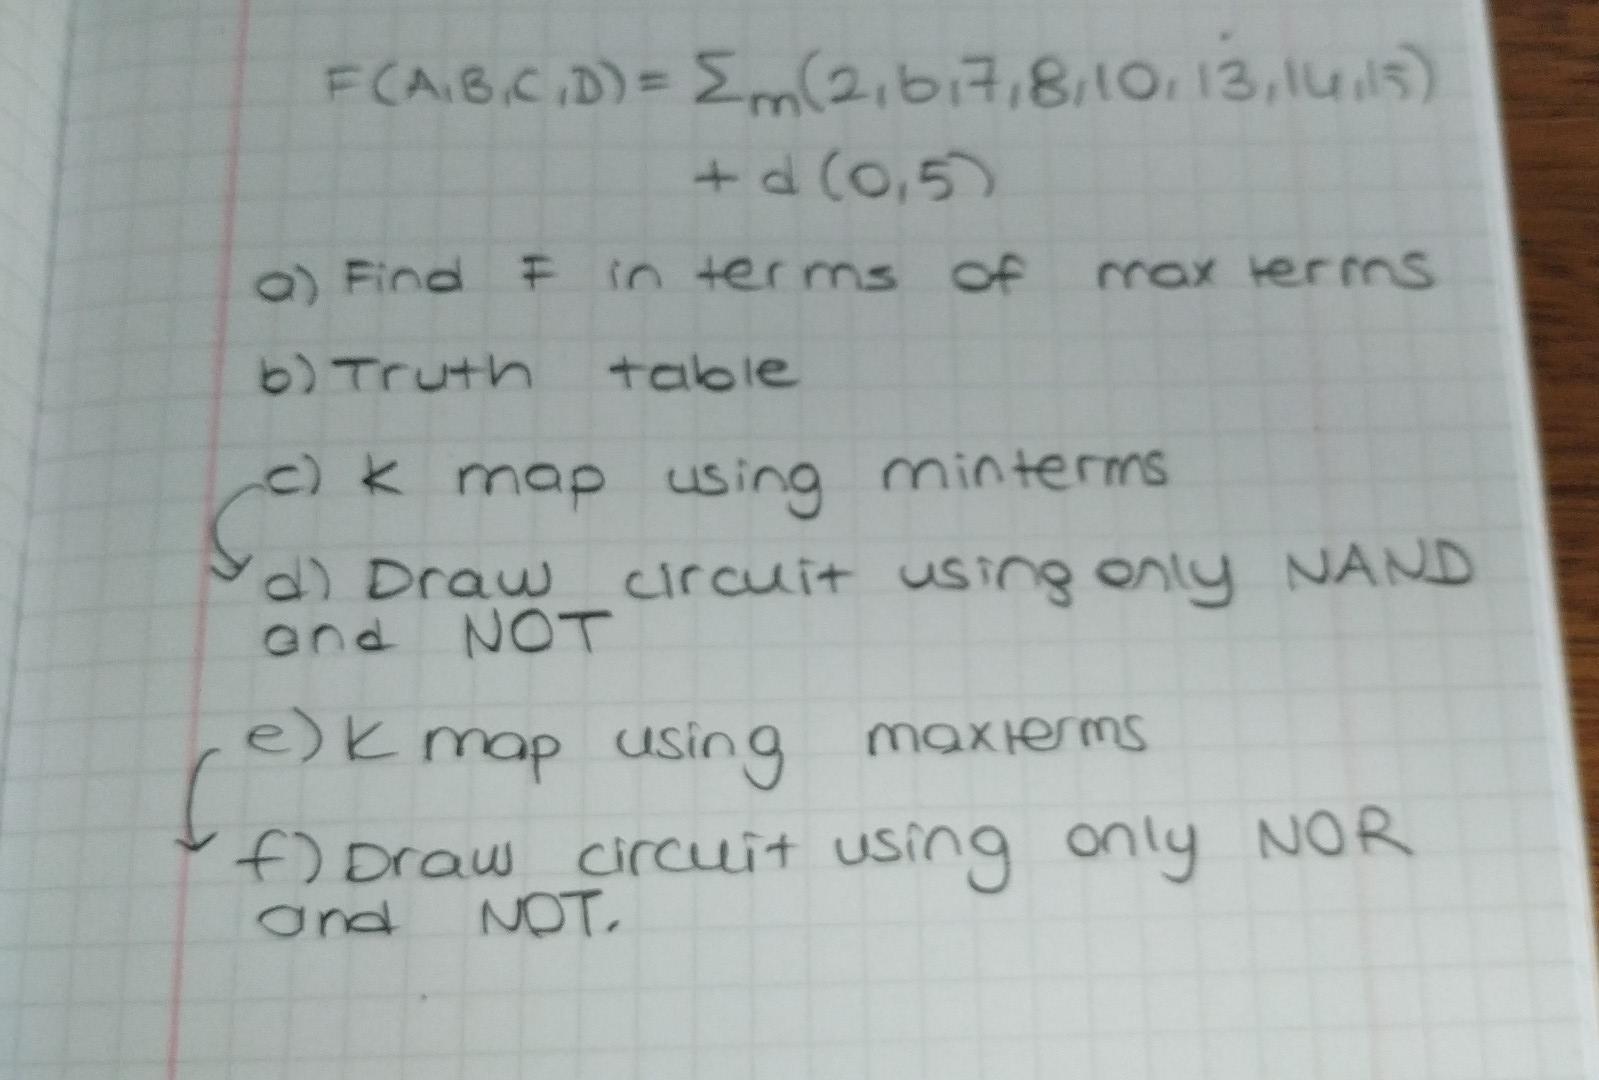 F(A,B,C,D) = Σm(2,6,7,8,10,13,14,15)
+ d(0,5)
a) Find F in terms of max terms
b) Truth table
c) K map using minterms
d) Draw circuit using only NAND
and NOT
e) K map using maxterms
f) Draw circuit using only NOR
and NOT.